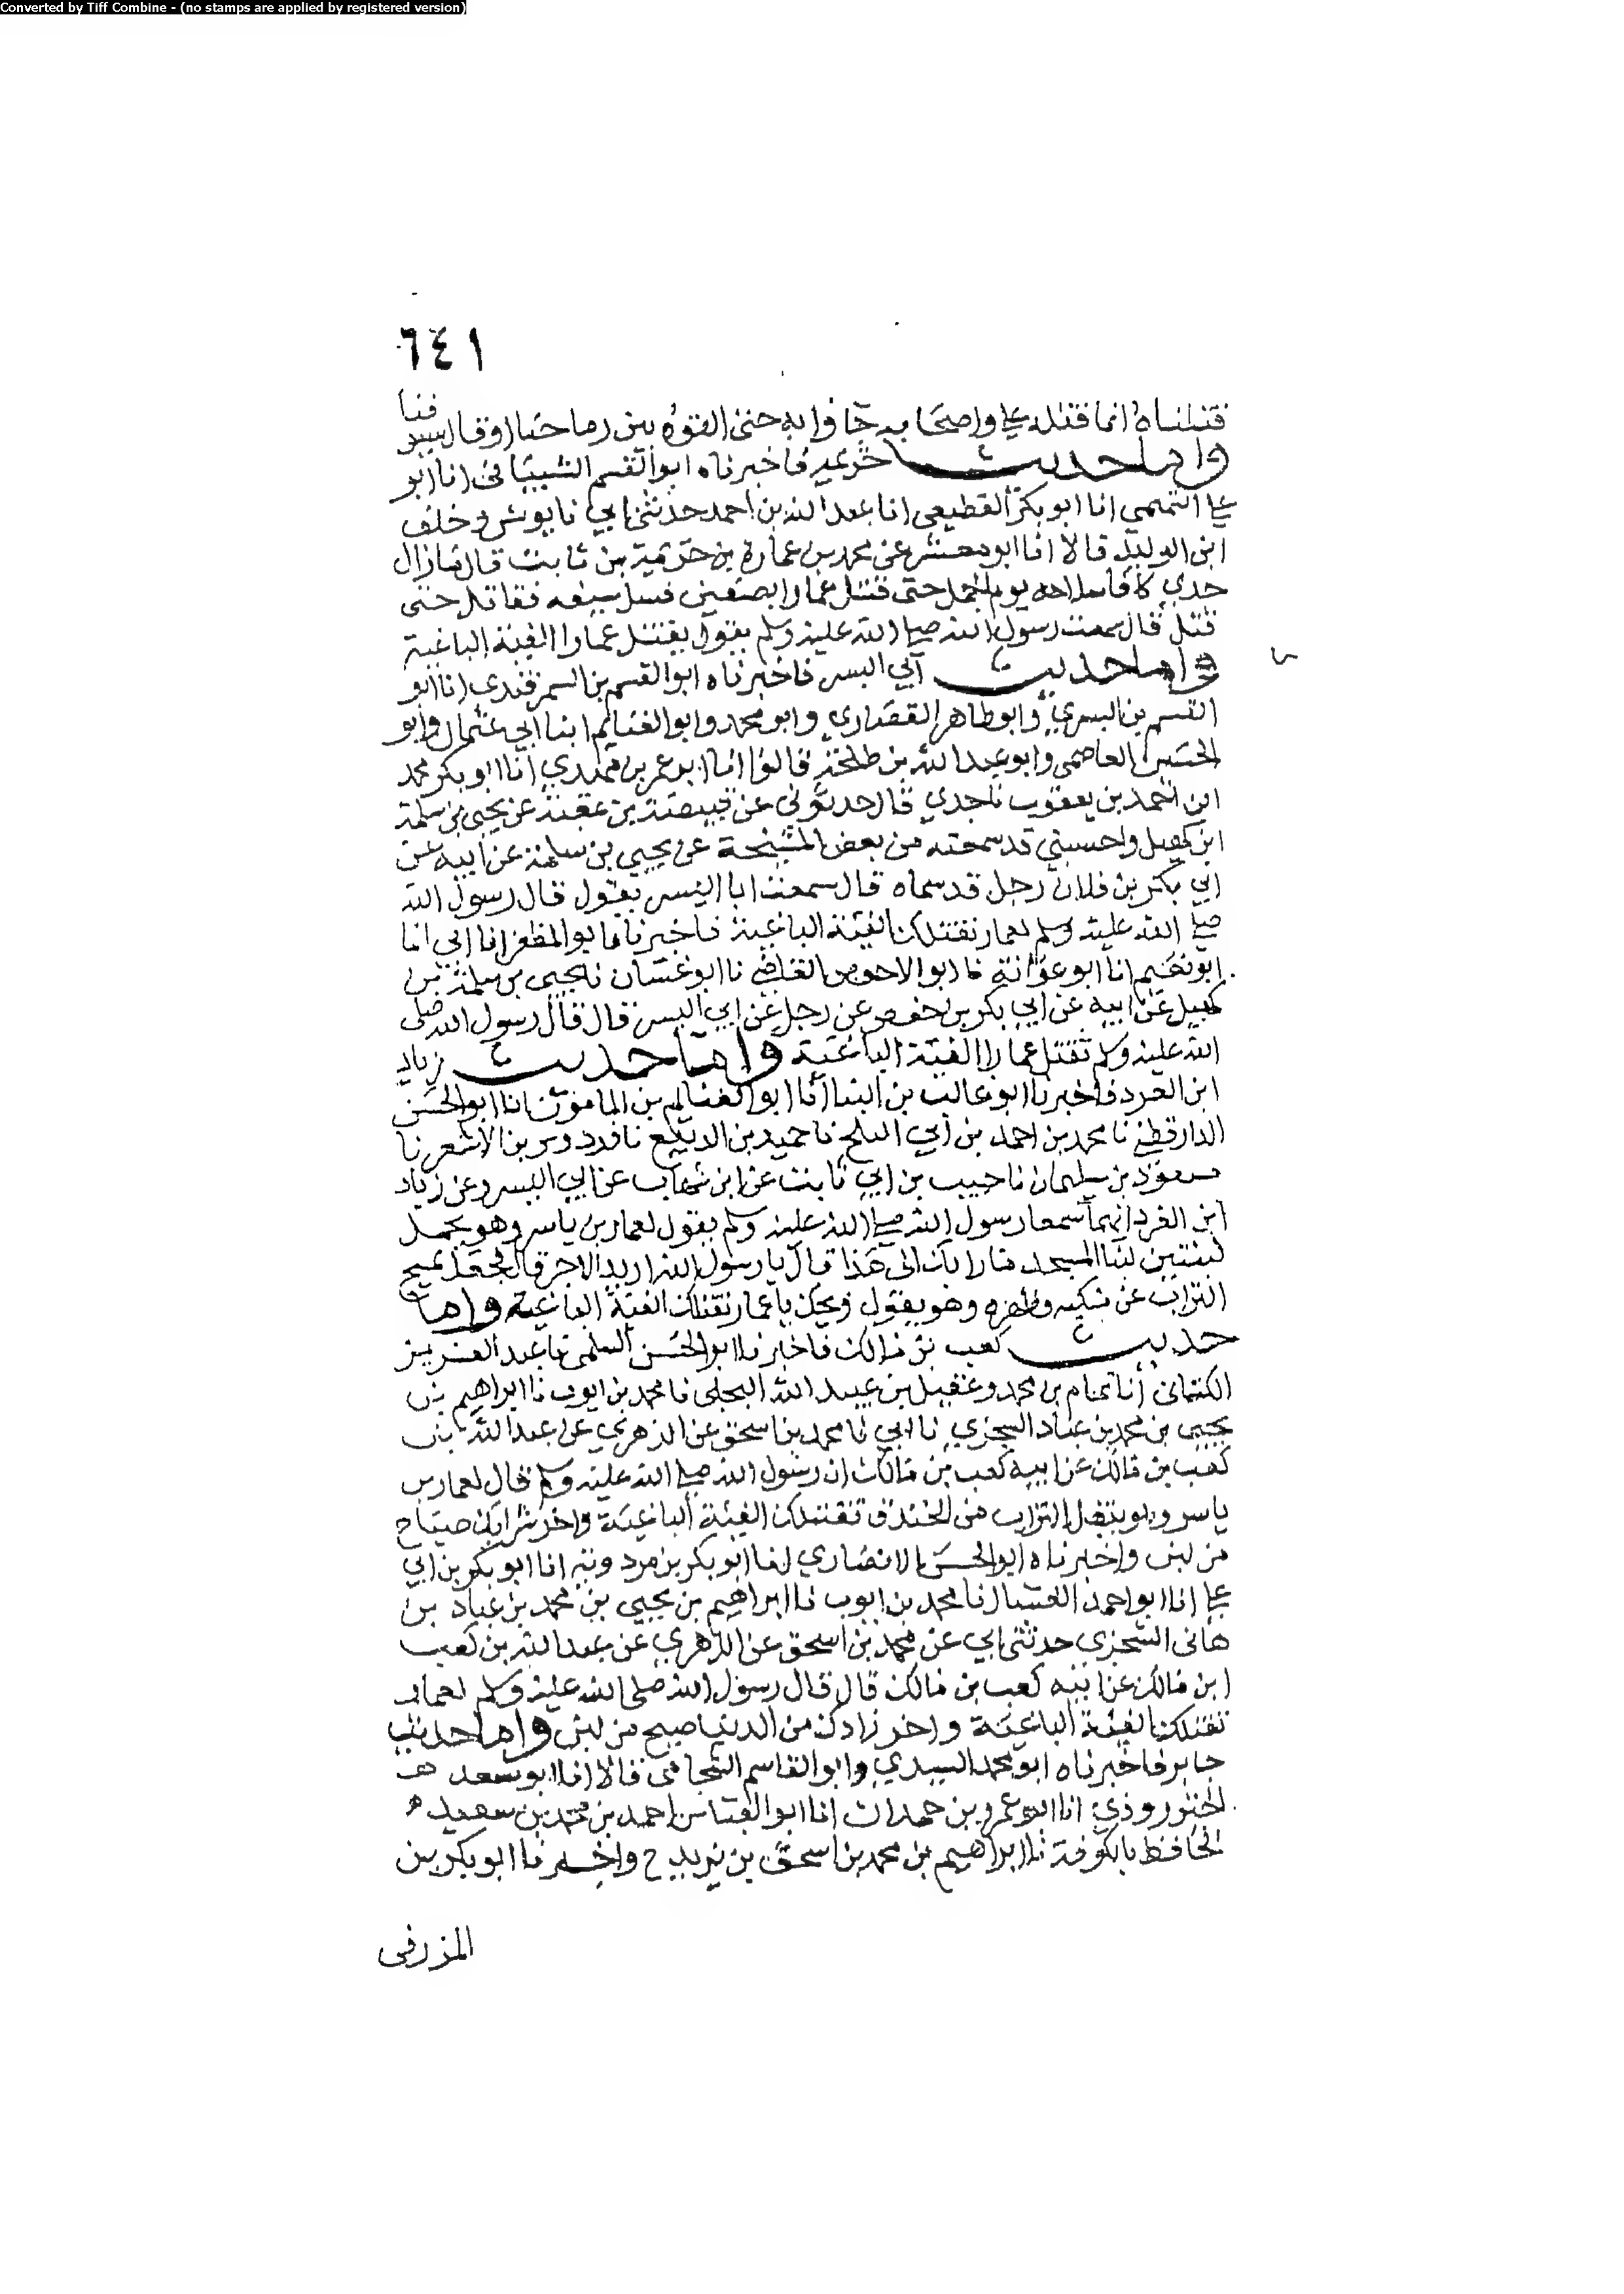 Converted by Tiff Combine - (no stamps are applied by registered version)
٦٤١
قتلناه انما قتله علي واصحابه جاوا به حتى القوه بين رماحنا او قال
واما حديث خزيمة فاخبرناه ابو القسم الشيباني انا ابو
علي التميمي انا ابو بكر القطيعي انا عبد الله بن احمد حدثني ابي نا يونس وخلف
ابن الوليد قالا انا ابو معشر عن محمد بن عمارة بن خزيمة بن ثابت قال ما زال
جدي كافا سلاحه يوم الجمل حتى قتل عمار ا بصفين فسل سيفه فقاتل حتى
قتل قال سمعت رسول الله صلي الله عليه وسلم يقول يقتل عمارا الفئة الباغية
واما حديث ابي اليسر فاخبرناه ابو القسم بن السمرقندي انا ابو
القسم بن البسري وابو طاهر القصاري وابو محمد وابو الغنايم ابنا ابي عثمان وابو
الحسين العاصمي وابو عبد الله بن طلحة قالوا انا ابو عمر بن مهدي انا ابو بكر محمد
ابن احمد بن يعقوب نا جدي قال حدثوني عن قبيصة بن عقبة عن يحيى بن سلمة
ابن كهيل واحسبني قد سمعته من بعض المشيخة عن يحيى بن سلمة عن ابيه عن
ابي بكر بن فلان رجل قد سماه قال سمعت ابا اليسر يقول قال رسول الله
صلي الله عليه وسلم لعمار تقتلك الفئة الباغية فاخبرنا ابو المظفر انا ابي انا
ابو نعيم انا ابو عوانة نا ابو الاحوص القاضي نا ابو غسان نا يحيى بن سلمة بن
كهيل عن ابيه عن ابي بكر بن حفص عن رجل عن ابي اليسر قال قال رسول الله صلى
الله عليه وسلم تقتل عمارا الفئة الباغية واما حديث زياد
ابن الغرد فاخبرنا ابو غالب بن البنا انا ابو الغنايم بن المامون انا ابو الحسن
الدارقطني نا محمد بن احمد بن ابي الثلج نا حميد بن الربيع نا فردوس بن الاشعر نا
مسعود بن سليمان نا حبيب بن ابي ثابت عن ابن شهاب عن ابي اليسر وعن زياد
ابن الغرد انهما سمعا رسول الله صلي الله عليه وسلم يقول لعمار بن ياسر وهو يحمل
لبنتين لبنا المسجد ما رابك الى هذا قال يا رسول الله اريد الاجر قال فجعل يمسح
التراب عن منكبيه وظهره وهو يقول ويحك يا عمار تقتلك الفئة الباغية واما
حديث كعب بن مالك فاخبرنا ابو الحسن السلمي نا عبد العزيز
الكتاني انا تمام بن محمد وعقيل بن عبيد الله البجلي نا محمد بن ايوب نا ابراهيم بن
يحيى بن محمد بن عباد السجزي نا ابي نا محمد بن اسحق عن الزهري عن عبد الله بن
كعب بن مالك عن ابيه كعب بن مالك ان رسول الله صلي الله عليه وسلم قال لعمار بن
ياسر وهو ينقل التراب من الخندق تقتلك الفئة الباغية واخر شرابك ضياح
من لبن واخبرناه ابو الحسن الانصاري انا ابو بكر بن مردويه انا ابو بكر بن ابي
علي انا ابو احمد العسال نا محمد بن ايوب نا ابراهيم بن يحيى بن محمد بن عباد بن
هانى الشجزي حدثني ابي عن محمد بن اسحق عن الزهري عن عبد الله بن كعب
ابن مالك عن ابيه كعب بن مالك قال قال رسول الله صلى الله عليه وسلم لعمار
تقتلك الفئة الباغية واخر زادك من الدنيا ضيح من لبن واما حديث
جابر فاخبرناه ابو محمد السيدي وابو القاسم الشحامي قالا انا ابو سعد
الجنزروذي انا ابو عمرو بن حمدان انا ابو العباس احمد بن محمد بن سعيد
الحافظ بالكوفة نا ابراهيم بن محمد بن اسحق بن يزيد ح واخبرنا ابو بكر بن
المزرفي